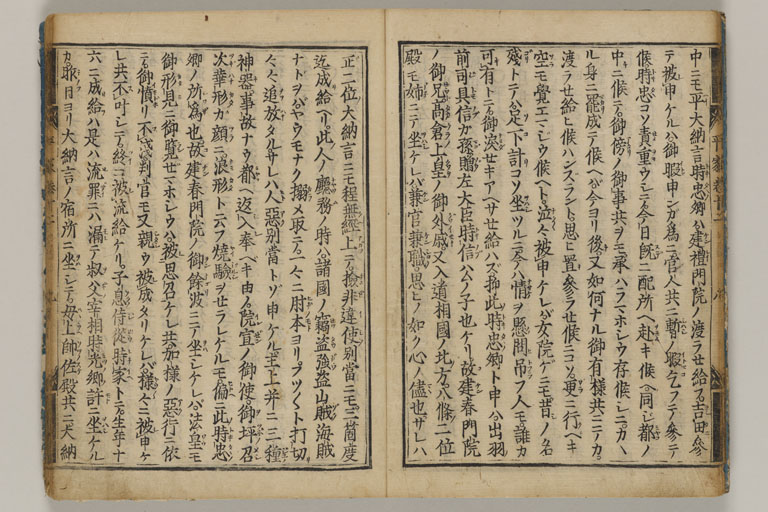 中ニモ平大納言時忠卿ハ建禮門院ノ渡ラせ給フ吉田ニ參
テ被申ケルハ御暇申ンガ為ニ官人共ニ暫ノ暇ヲ乞フテ參テ
候時忠コソ責重ウシテ今日既ニ配所ヘ赴キ候ヘ同シ都ノ
中ニ候テ御傍ノ御事共ヲモ承ハラマホシウ存候シニカヽ
ル身ニ罷成テ候ヘハ今ヨリ後又如何ナル御有様共ニテカ
渡ラセ給ヒ候ハンスラント思ヒ置參ラセ候ニコソ更ニ行ベキ
空モ覺エマジウ候ヘト泣々被申ケレバ女院ゲニモ昔ノ名
殘トテハ足下計コソ坐ツルニ今ハ情ヲ懸問吊フ人モ誰カ
可有トテ御淚セキアヘサセ給ハズ抑此時忠卿ト申ハ出羽
前司具信カ孫贈左大臣時信公ノ子也ケリ故建春門院
ノ御兄高倉上皇ノ御外戚又入道相國ノ北方八條二位
殿モ姉ニテ坐ケレバ兼官兼職思ヒノ如ク心ノ儘也サレハ
正二位大納言ニモ程無經上テ檢非違使別當ニモ三箇度
迄成給ヘリ此人ノ廳務ノ時ハ諸國ノ竊盗強盗山賊海賊
ナトヲハヤウモナク搦メ取テ一々ニ肘本ヨリフツヽト打切
々々追放タルサレハ人惡別當トソ申ケル主上并ニ三種
神器事故ナウ都ヘ返入奉ヘキ由ノ院宣ノ御使御坪召
次華形カ顔ニ浪形ト云フ燒驗ヲせラレケルモ偏ニ此時忠
卿ノ所為也故建春門院ノ御餘波ニテ坐シケレハ法皇モ
御形見ニ御覽せマホシウハ被思召ケレ共加樣ノ惡行ニ依
テ御憤リ不淺判官モ又親ウ被成タリケレバ樣々ニ被申ケ
レ共不叶シテ終ニ被流給ケリ子息侍從時家トテ生年十
六ニ成給ハ是ハ流罪ニハ漏テ叔父宰相時光卿許ニ坐ケル
カ昨日ヨリ大納言ノ宿所ニ坐シテ母上帥佐殿共ニ大納